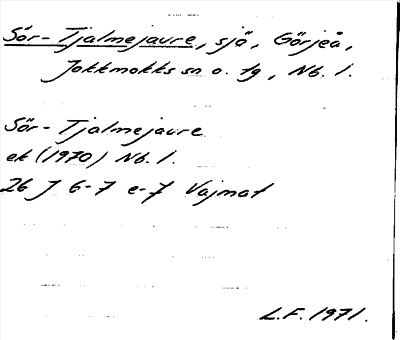 Sör-Tjalmejaure, sjö, Görjeå,
Jokkmokks sn o. tg, Nb. l.
Sör-Tjalmejaure
ek (1970) Nb. l.
26 J 6-7 e-f Vajmat
L.F. 1971.